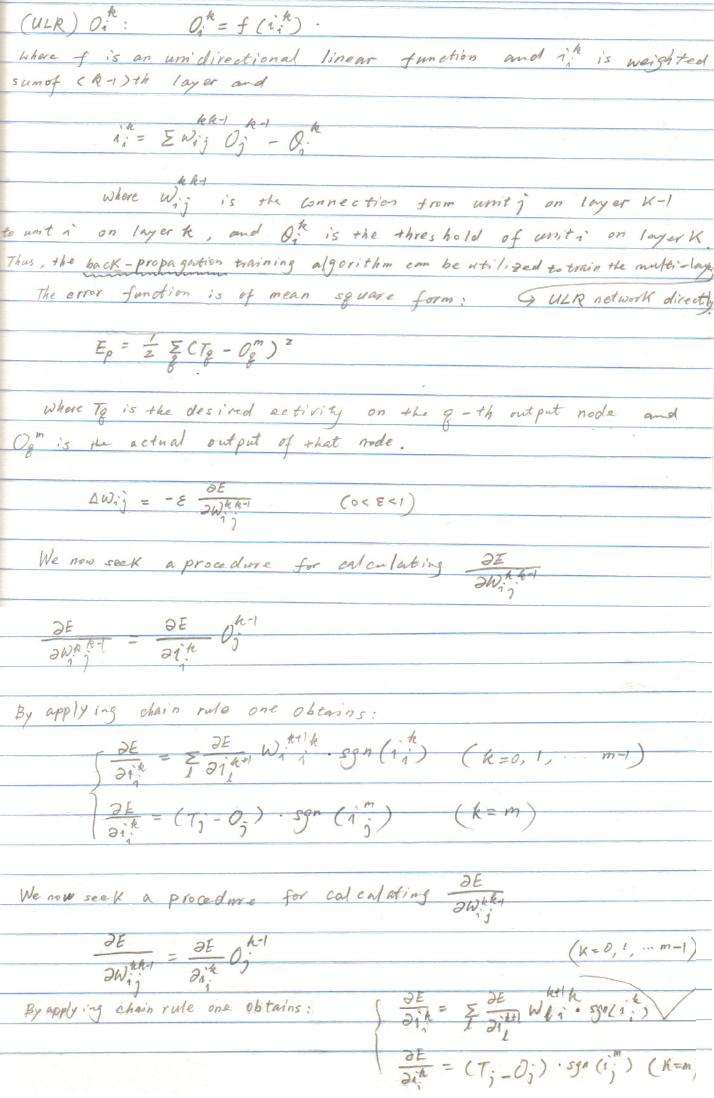 (ULR) O_i^k : O_i^k = f (i_i^k) .
where f is an unidirectional linear function and i_i^k is weighted
sum of (k-1)th layer and
i_i^k = Σ W_ij^{kk-1} O_j^{k-1} - θ_i^k
where W_ij^{kk-1} is the connection from unit j on layer K-1
to unit i on layer k, and θ_i^k is the threshold of unit i on layer K.
Thus, the back-propagation training algorithm can be utilized to train the multi-layer
The error function is of mean square form: ↪ ULR network directly.
E_p = 1/2 Σ_q (T_q - O_q^m)^2
where T_q is the desired activity on the q-th output node and
O_q^m is the actual output of that node.
ΔW_ij = -ε ∂E/∂W_ij^{kk-1} (0<ε<1)
We now seek a procedure for calculating ∂E/∂W_ij^{kk-1}
∂E/∂W_ij^{kk-1} = ∂E/∂i_i^k O_j^{k-1}
By applying chain rule one obtains:
∂E/∂i_i^k = Σ_l ∂E/∂i_l^{k+1} W_ii^{k+1k} · sgn(i_i^k) (k=0, 1, ... m-1)
∂E/∂i_i^k = (T_j - O_j) · sgn(i_j^m) (k=m)
We now seek a procedure for calcalating ∂E/∂W_ij^{kk-1}
∂E/∂W_ij^{kk-1} = ∂E/∂i_i^k O_j^{k-1} (K=0, 1, ... m-1)
By applying chain rule one obtains: ∂E/∂i_i^k = Σ_l ∂E/∂i_l^{k+1} W_li^{k+1k} · sgn(i_i^k)
∂E/∂i_i^k = (T_j - O_j) · sgn(i_j^m) (K=m,